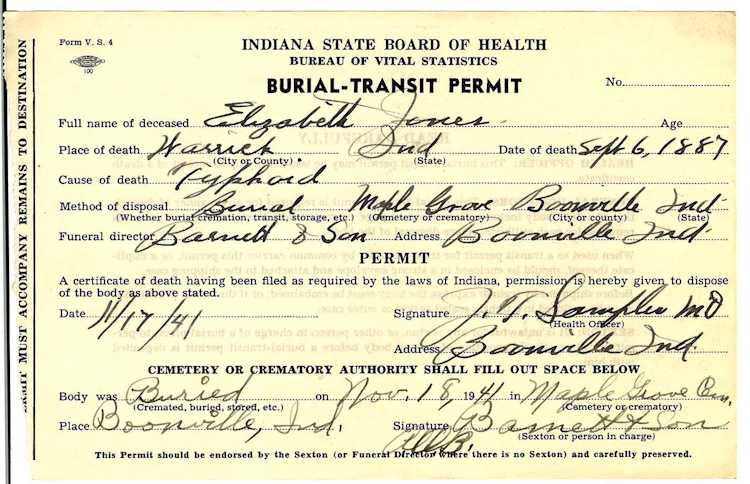 Form V. S. 4
INDIANA STATE BOARD OF HEALTH
BUREAU OF VITAL STATISTICS
100
BURIAL-TRANSIT PERMIT
No.
Full name of deceased Elizabeth Jones Age
Place of death Warrick Ind Date of death Sept 6, 1887
(City or County) (State)
Cause of death Typhoid
Method of disposal Burial Maple Grove Boonville Ind
(Whether burial, cremation, transit, storage, etc.) (Cemetery or crematory) (City or county) (State)
Funeral director Barnett & Son Address Boonville Ind
PERMIT
A certificate of death having been filed as required by the laws of Indiana, permission is hereby given to dispose
of the body as above stated.
Date 11/17/41 Signature Samples MD
(Health Officer)
Address Boonville Ind.
CEMETERY OR CREMATORY AUTHORITY SHALL FILL OUT SPACE BELOW
Body was Buried on Nov. 18, 1941 in Maple Grove Cem.
(Cremated, buried, stored, etc.) (Cemetery or crematory)
Place Boonville, Ind. Signature Barnett & Son
(Sexton or person in charge)
This Permit should be endorsed by the Sexton (or Funeral Director where there is no Sexton) and carefully preserved.
PERMIT MUST ACCOMPANY REMAINS TO DESTINATION